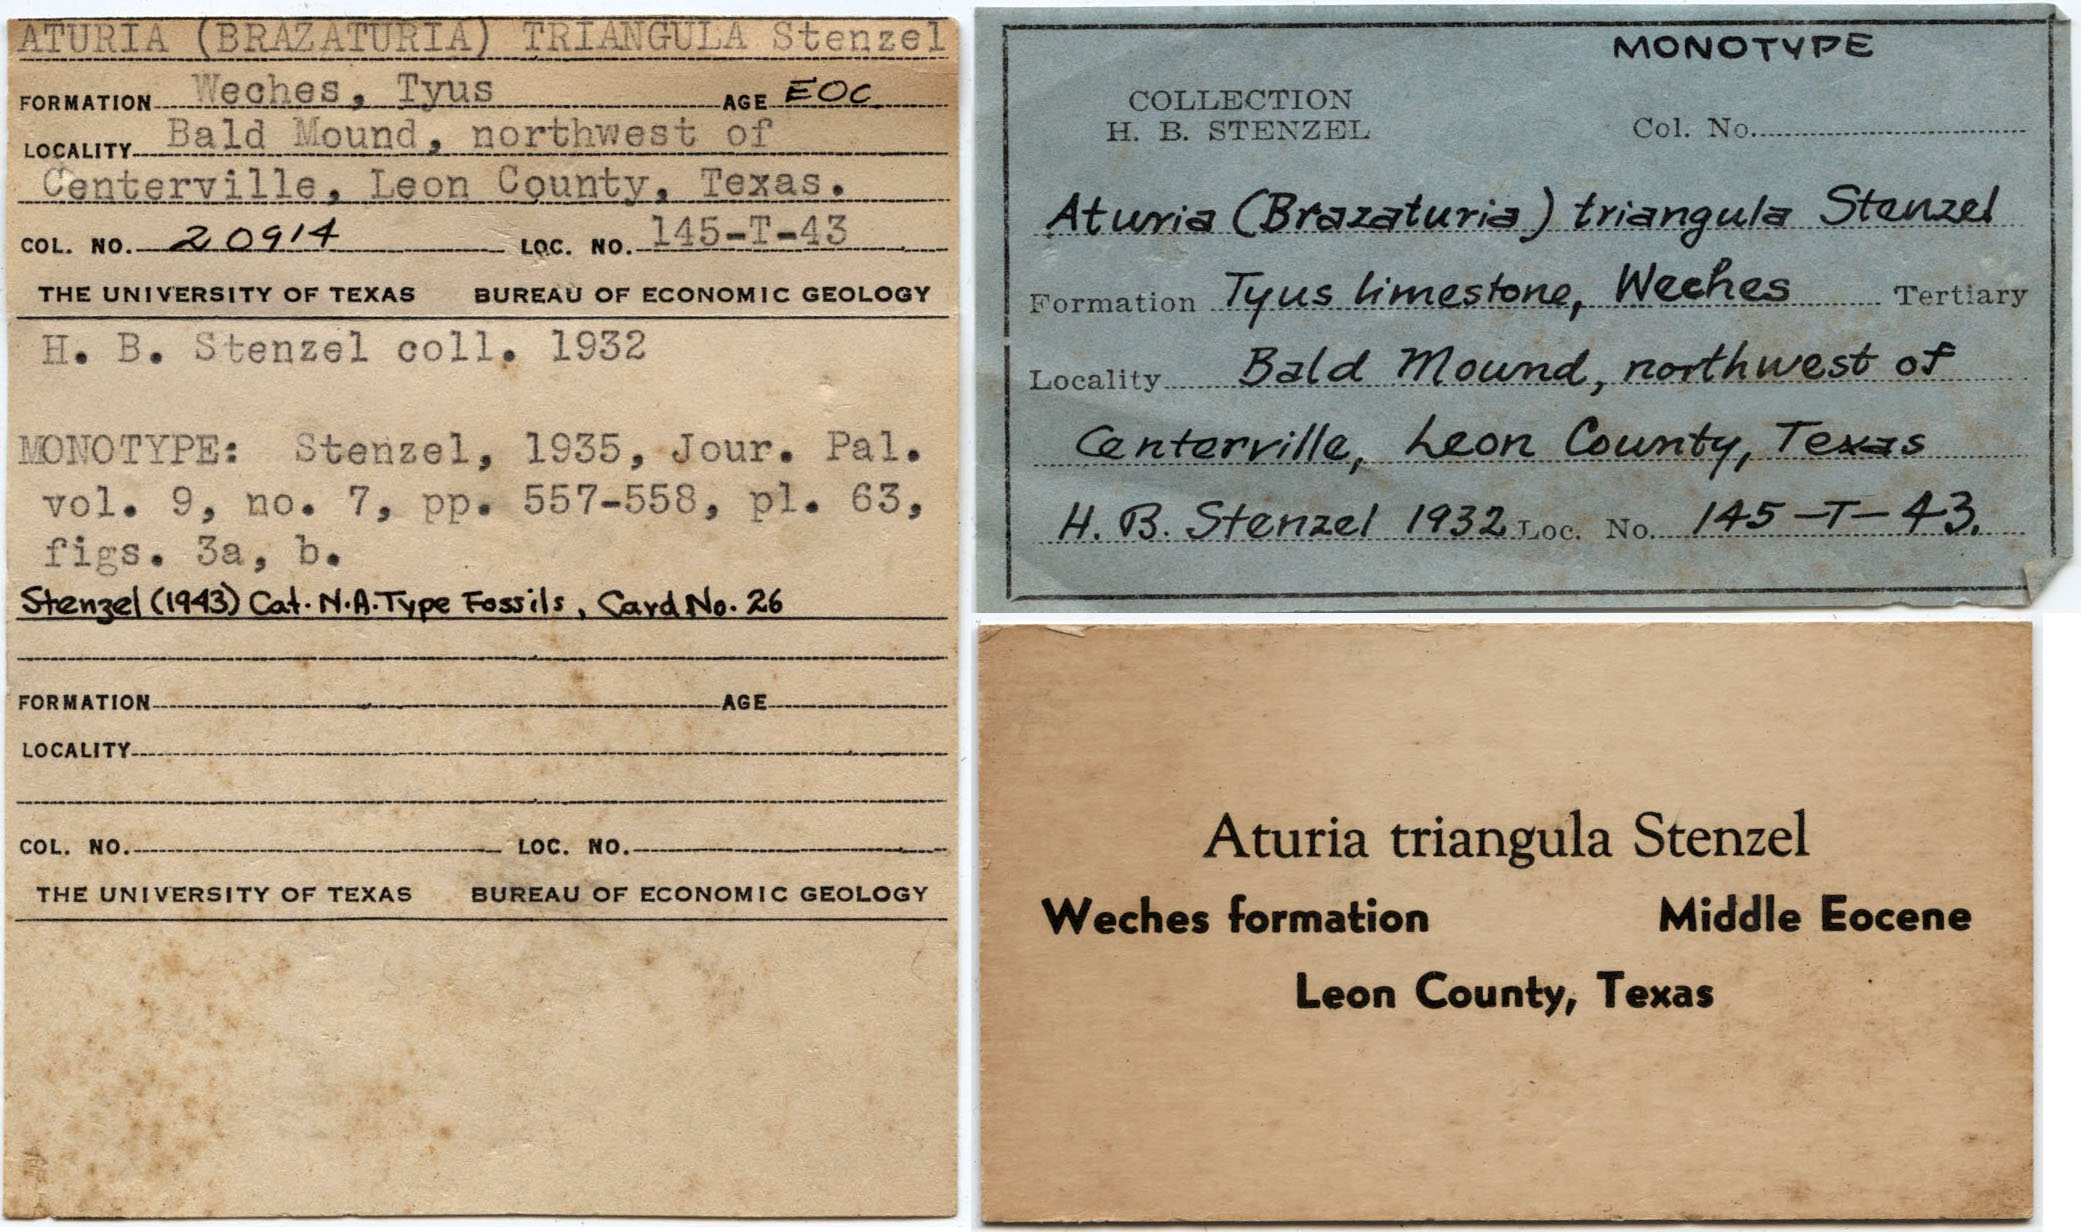 ATURIA (BRAZATURIA) TRIANGULA Stenzel
FORMATION Weches, Tyus AGE EOC
LOCALITY Bald Mound, northwest of
Centerville, Leon County, Texas.
COL. NO. 20914 LOC. NO. 145-T-43
THE UNIVERSITY OF TEXAS BUREAU OF ECONOMIC GEOLOGY
H. B. Stenzel coll. 1932
MONOTYPE: Stenzel, 1935, Jour. Pal.
vol. 9, no. 7, pp. 557-558, pl. 63,
figs. 3a, b.
Stenzel (1943) Cat. N.A. Type Fossils, Card No. 26
FORMATION AGE
LOCALITY
COL. NO. LOC. NO.
THE UNIVERSITY OF TEXAS BUREAU OF ECONOMIC GEOLOGY
MONOTYPE
COLLECTION
H. B. STENZEL Col. No.
Aturia (Brazaturia) triangula Stenzel
Formation Tyus limestone, Weches Tertiary
Locality Bald Mound, northwest of
Centerville, Leon County, Texas
H. B. Stenzel 1932 Loc. No. 145-T-43.
Aturia triangula Stenzel
Weches formation Middle Eocene
Leon County, Texas